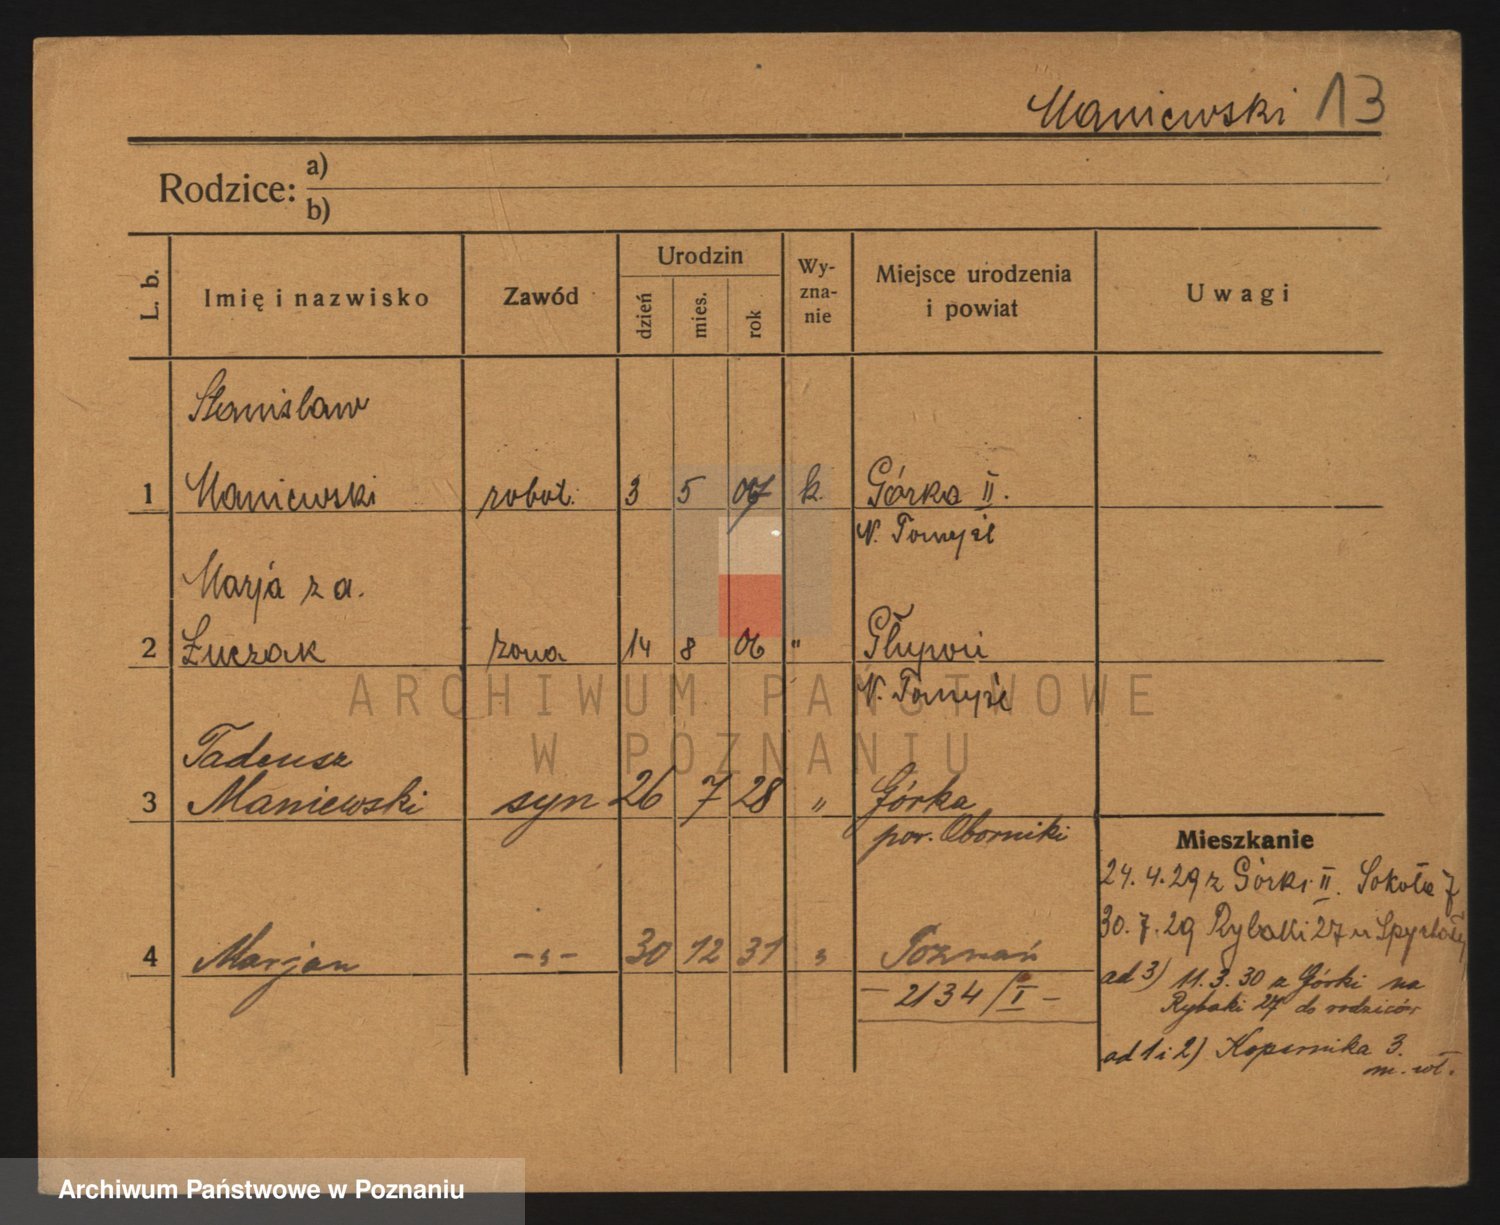 Maniewski 13
Rodzice: a)
b)
L. b.
Imię i nazwisko
Zawód
Urodzin
dzień
mies.
rok
Wy-
zna-
nie
Miejsce urodzenia
i powiat
Uwagi
Stanisław
1 Maniewski robot. 3 5 07 k. Górka II.
N. Tomyśl
Marja z d.
2 Łuczak żona 14 8 06 " Głuponi
N. Tomyśl
Tadeusz
3 Maniewski syn 26 7 28 " Górka
pow. Oborniki
4 Marjan -"- 30 12 31 " Poznań
- 2134/I -
Mieszkanie
24. 4. 29 z Górki II. Sokoła 7
30. 7. 29 Rybaki 27 u
ad 3) 11. 3. 30 z Górki na
Rybaki 27 do rodziców
ad 1 i 2) Kopernika 3.
m. wł.
ARCHIWUM PAŃSTWOWE
W POZNANIU
Archiwum Państwowe w Poznaniu